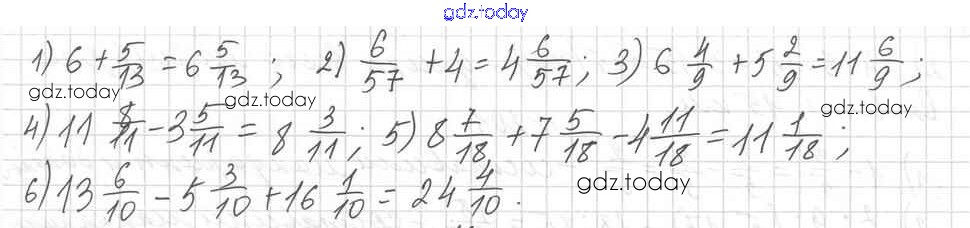 gdz.today
1) 6 + 5/13 = 6 5/13 ; 2) 6/57 + 4 = 4 6/57 ; 3) 6 4/9 + 5 2/9 = 11 6/9 ;
gdz.today gdz.today gdz.today
4) 11 8/11 - 3 5/11 = 8 3/11 ; 5) 8 7/18 + 7 5/18 - 4 11/18 = 11 1/18 ;
6) 13 6/10 - 5 3/10 + 16 1/10 = 24 4/10 .
gdz.today